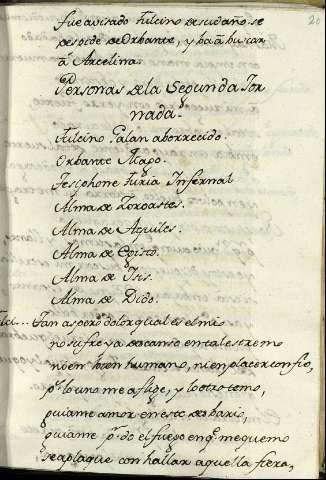 20
fue avisado Fulcino de su daño. se
desọide de Orbante, y ba â buscar
â Arcelina.
Personas de la Segunda Jor
nada.
Fulcino Galan aborrecido.
Orbante Mago.
Tesiphone Furia Infernal
Alma de Zoroastes.
Alma de Aquiles.
Alma de Egisto.
Alma de Isis.
Alma de Dido.
Tan aspero dolor qual es el mio
no sufre ya descanso en tal estremo
ni en bien humano, ni en placer confio,
pr. lo uno me aflige, y lo otro temo,
guiame amor en este desbario,
guiame pr. do el fuego en q. me quemo
se aplaque con hallar aquella fiera,